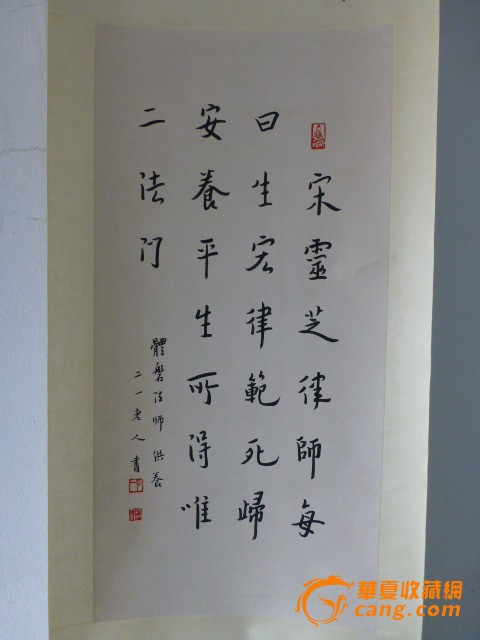 宋靈芝律師每
曰生宏律範死歸
安養平生所得唯
二法门
體磐法師供养
二一老人書
華夏收藏網
cang.com